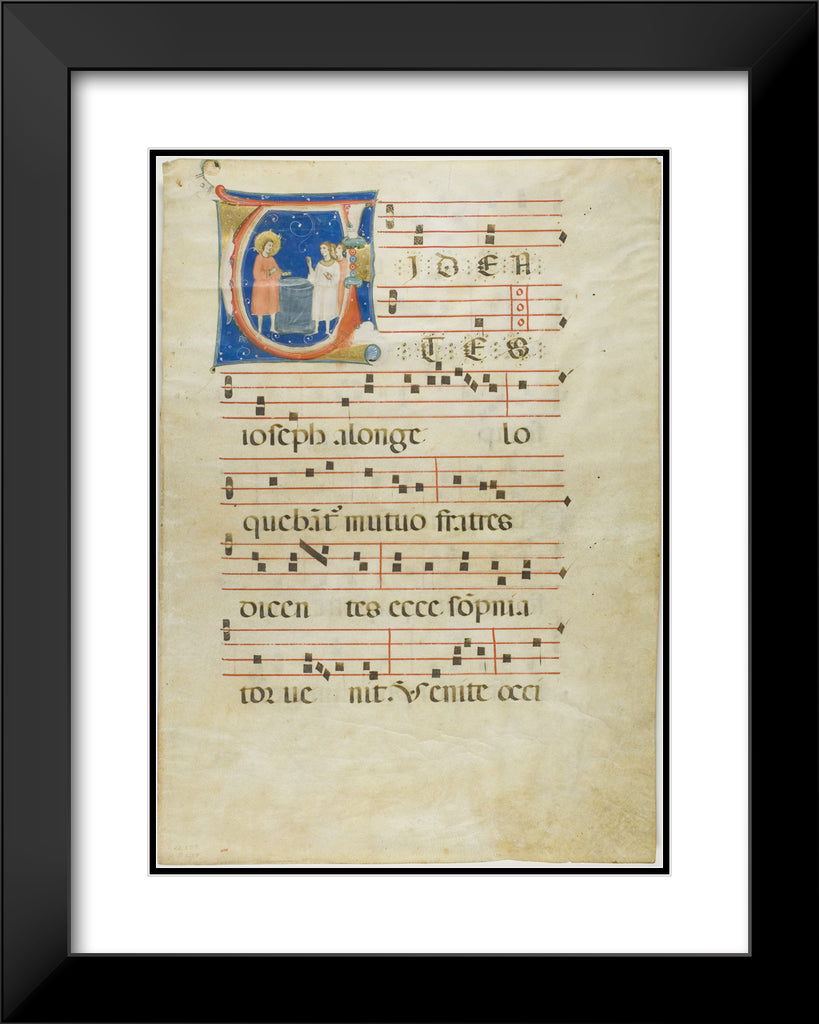 VIDEN
TES
ioseph alonge lo
quebāt᷑ mutuo fratres
dicen tes ecce sōpnia
tor ue nit. ℣ Uenite occi